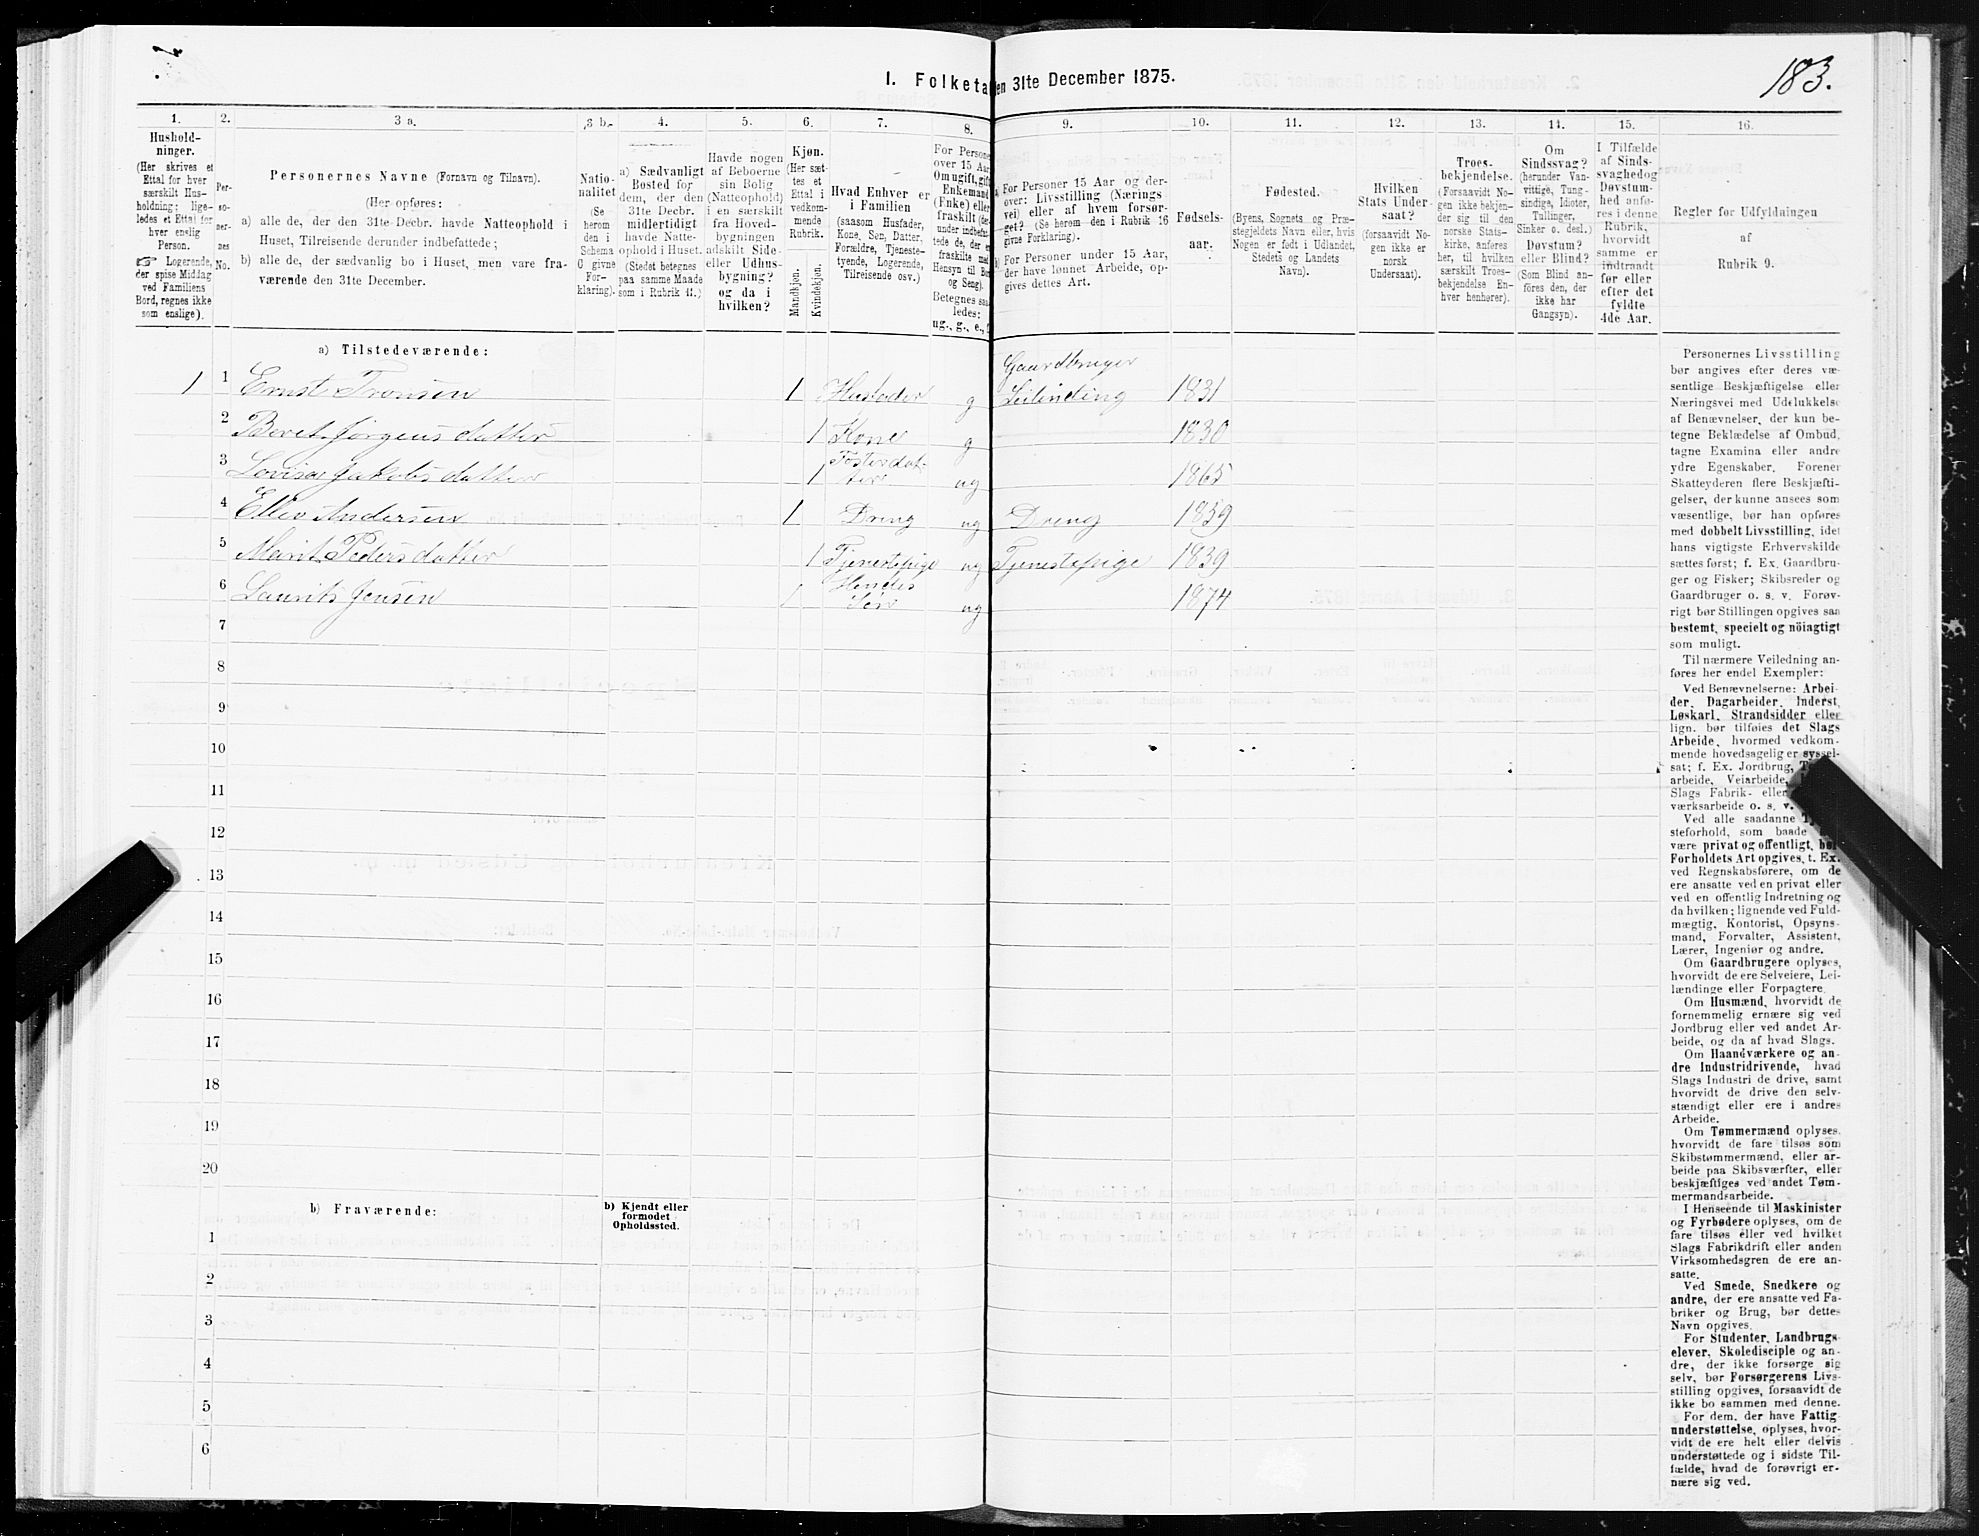 I. Folketa en 31te December 1875.
183.
1.
Hushold-
ninger.
(Her skrives et
Ettal for hver
særskilt Hus-
holdning; lige-
ledes et Ettal for
hver enslig
Person.
Logerende,
der spise Middag
ved Familiens
Bord, regnes ikke
som enslige).
2.
Per-
so-
ner-
nes
No.
3 a.
Personernes Navne (Fornavn og Tilnavn).
(Her opføres:
a) alle de, der den 31te Decbr. havde Natteophold i
Huset, Tilreisende derunder indbefattede;
b) alle de, der sædvanlig bo i Huset, men vare fra-
værende den 31te December.
3 b.
Natio-
nalitet
(Se
herom
den i
Schema
C givne
For-
klaring).
4.
a) Sædvanligt
Bosted for
dem, der den
31te Decbr.
midlertidigt
havde Natte-
ophold i Huset.
(Stedet betegnes
paa samme Maade
som i Rubrik 11.)
5.
Havde nogen
af Beboerne
sin Bolig
(Natteophold)
i en særskilt
fra Hoved-
bygningen
adskilt Side-
eller Udhus-
bygning?
og da i
hvilken?
6.
Kjøn.
(Her sæt-
tes et
Ettal i
vedkom-
mende
Rubrik.
Mandkjøn.
Kvindekjøn.
7.
Hvad Enhver er
i Familien
(saasom Husfader,
Kone, Søn, Datter,
Forældre, Tjeneste-
tyende, Logerende,
Tilreisende osv.)
8.
For Persone
over 15 Aar
Om ugift, gift
Enkemand
(Enke) eller
fraskilt
Betegnes saa
ledes:
ug., g., e.,
9.
a) For Personer 15 Aar og der-
over: Livsstilling (Nærings-
vei) eller af hvem forsør-
get? (Se herom den i Rubrik 16
givne Forklaring).
b) For Personer under 15 Aar,
der have lønnet Arbeide, op-
gives dettes Art.
10.
Fødsels-
aar.
11.
Fødested.
(Byens, Sognets og Præ-
stegjeldets Navn eller, hvis
Nogen er født i Udlandet,
Stedets og Landets
Navn).
12.
Hvilken
Stats Under-
saat?
(forsaavidt No-
gen ikke er
norsk
Undersaat).
13.
Troes-
bekjendelse.
(Forsaavidt No-
gen ikke bekjen-
der sig til den
norske Stats-
kirke, anføres
her, til hvilken
særskilt Troes-
bekjendelse En-
hver henhører).
14.
Om
Sindssvag?
(herunder Van-
vittige, Tung-
sindige, Idioter,
Tullinger,
Sinker o. desl.)
Døvstum?
eller Blind?
(Som Blind an-
føres den, der
ikke har
Gangsyn).
15.
I Tilfælde
af Sinds-
svaghed og
Døvstum-
hed anfø-
res i denne
Rubrik,
hvorvidt
samme er
indtraadt
før eller
efter det
fyldte
4de Aar.
16.
Regler for Udfyldningen
af
Rubrik 9.
a) Tilstedeværende:
Gaardbruger
1 1 Ernst Tronsen 1 Husfader g Leilinding 1831
2 Beret Jørgensdatter 1 Kone g 1830
3 Lovisa Jakobsdatter 1 Fosterdat-
ter ug 1865
4 Ellev Andersen 1 Dreng ug Dreng 1859
5 Marit Pedersdatter 1 Tjenestepige ug Tjenestepige 1839
6 Laurits Jensen 1 Hendes
Søn ug 1874
7
8
9
10
11
12
13
14
15
16
17
18
19
20
b) Fraværende:
b) Kjendt eller
formodet
Opholdssted.
1
2
3
4
5
6
Personernes Livsstilling
bør angives efter deres væ-
sentlige Beskjæftigelse eller
Næringsvei med Udelukkelse
af Benævnelser, der kun be-
tegne Beklædelse af Ombud,
tagne Examina eller andre
ydre Egenskaber. Forener
Skatteyderen flere Beskjæfti-
gelser, der kunne ansees som
væsentlige, bør han opføres
med dobbelt Livsstilling, idet
hans vigtigste Erhvervskilde
sættes først; f. Ex. Gaardbru-
ger og Fisker; Skibsreder og
Gaardbruger o. s. v. Forøv-
rigt bør Stillingen opgives saa
bestemt, specielt og nöiagtigt
som muligt.
Til nærmere Veiledning an-
føres her endel Exempler:
Ved Benævnelserne: Arbei-
der, Dagarbeider, Inderst,
Løskarl, Strandsidder eller
lign. bør tilføies det Slags
Arbeide, hvormed vedkom-
mende hovedsagelig er syssel-
sat; f. Ex. Jordbrug,
arbeide, Veiarbeide,
Slags Fabrik- eller
værksarbeide o. s. v.
Ved alle saadanne
steforhold, som baade
være privat og offentligt, bør
Forholdets Art opgives, t. Ex.
ved Regnskabsførere, om de
ere ansatte ved en privat eller
ved en offentlig Indretning og
da hvilken; lignende ved Fuld-
mægtig, Kontorist, Opsyns-
mand, Forvalter, Assistent,
Lærer, Ingeniør og andre.
Om Gaardbrugere oplyses,
hvorvidt de ere Selveiere, Lei-
lændinge eller Forpagtere.
Om Husmænd, hvorvidt de
fornemmelig ernære sig ved
Jordbrug eller ved andet Ar-
beide, og da af hvad Slags.
Om Haandværkere og an-
dre Industridrivende, hvad
Slags Industri de drive, samt
hvorvidt de drive den selv-
stændigt eller ere i andres
Arbeide.
Om Tømmermænd oplyses,
hvorvidt de fare tilsøs som
Skibstømmermænd, eller ar-
beide paa Skibsværfter, eller
beskjæftiges ved andet Tøm-
mermandsarbeide.
I Henseende til Maskinister
og Fyrbødere oplyses, om de
fare tilsøs eller ved hvilket
Slags Fabrikdrift eller anden
Virksomhedsgren de ere an-
satte.
Ved Smede, Snedkere og
andre, der ere ansatte ved Fa-
briker og Brug, bør dettes
Navn opgives.
For Studenter, Landbrugs-
elever, Skoledisciple og an-
dre, der ikke forsørge sig
selv, bør Forsørgerens Livs-
stilling opgives, forsaavidt de
ikke bo sammen med denne.
For dem, der have Fattig-
understøttelse, oplyses, hvor-
vidt de ere helt eller delvis
understøttede og i sidste Til-
fælde, hvad de forøvrigt er-
nære sig ved.